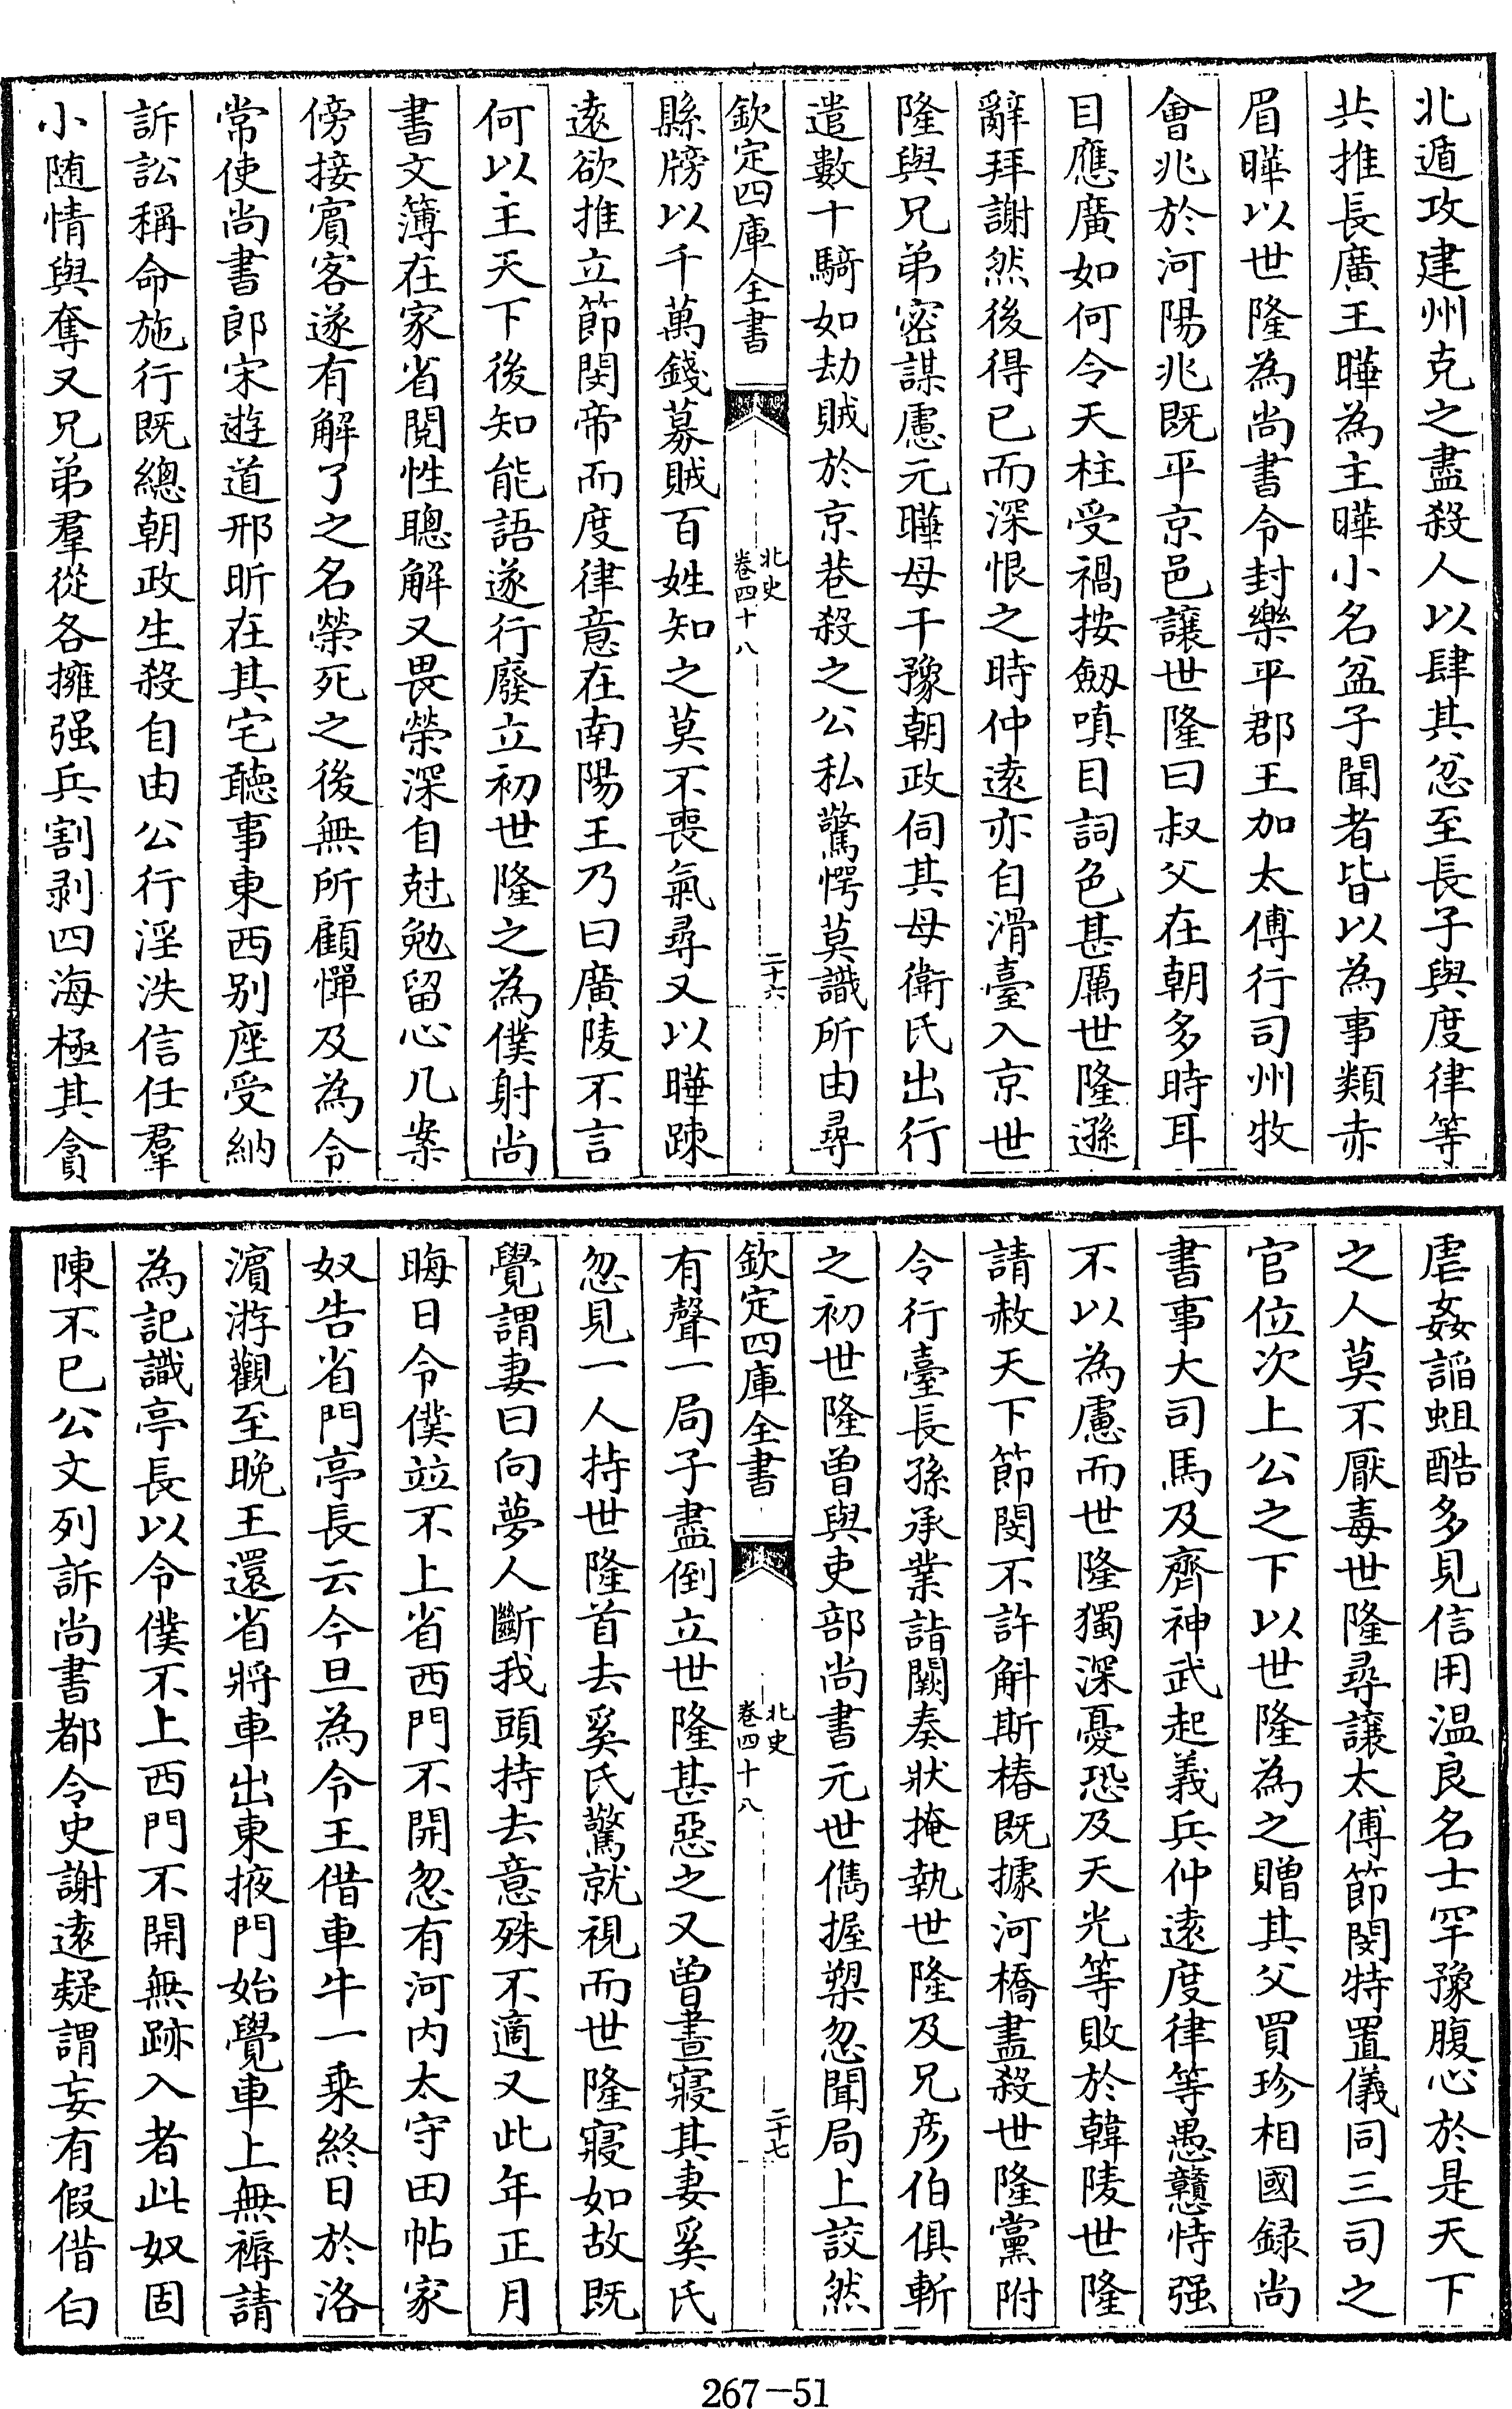 北遁攻建州克之盡殺人以肆其忿至長子與度律等
共推長廣王曄為主曄小名盆子聞者皆以為事類赤
眉曄以世隆為尚書令封樂平郡王加太傅行司州牧
會兆於河陽兆既平京邑讓世隆曰叔父在朝多時耳
目應廣如何令天柱受禍按劔嗔目詞色甚厲世隆遜
辭拜謝然後得已而深恨之時仲遠亦自滑臺入京世
隆與兄弟密謀慮元曄母干豫朝政伺其母衛氏出行
遣數十騎如劫賊於京巷殺之公私驚愕莫識所由尋
欽定四庫全書
北史
卷四十八
二十六
縣牓以千萬錢募賊百姓知之莫不喪氣尋又以曄踈
逺欲推立節閔帝而度律意在南陽王乃曰廣陵不言
何以主天下後知能語遂行廢立初世隆之為僕射尚
書文簿在家省閱性聰解又畏榮深自尅勉留心几案
傍接賔客遂有解了之名榮死之後無所顧憚及為令
常使尚書郎宋遊道邢昕在其宅聽事東西别座受納
訴訟稱命施行既總朝政生殺自由公行淫泆信任羣
小随情與奪又兄弟羣從各擁强兵割剥四海極其貪
虐姦謟蛆酷多見信用温良名士罕豫腹心於是天下
之人莫不厭毒世隆尋讓太傅節閔特置儀同三司之
官位次上公之下以世隆為之贈其父買珍相國録尚
書事大司馬及齊神武起義兵仲逺度律等愚戇恃强
不以為慮而世隆獨深憂恐及天光等敗於韓陵世隆
請赦天下節閔不許斛斯椿既據河橋盡殺世隆黨附
令行臺長孫承業詣闕奏狀掩執世隆及兄彦伯俱斬
之初世隆曾與吏部尚書元世儁握槊忽聞局上詨然
欽定四庫全書
北史
卷四十八
二十七
有聲一局子盡倒立世隆甚惡之又曽晝寢其妻奚氏
忽見一人持世隆首去奚氏驚就視而世隆寢如故既
覺謂妻曰向夢人斷我頭持去意殊不適又此年正月
晦日令僕竝不上省西門不開忽有河内太守田帖家
奴告省門亭長云今旦為令王借車牛一乘終日於洛
濵游觀至晚王還省將車出東掖門始覺車上無褥請
為記識亭長以令僕不上西門不開無跡入者此奴固
陳不已公文列訴尚書都令史謝逺疑謂妄有假借白
267-51